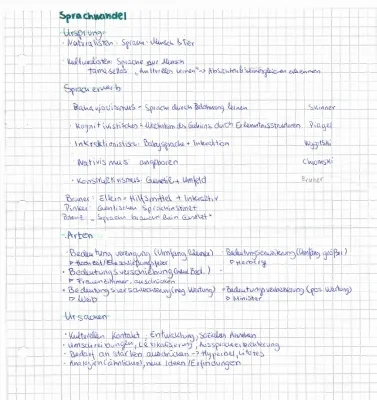 Sprachwandel
Ursprung:
· Naturalisten: Sprache Mensch & Tier
· Kulturalisten: Sprache nur Mensch
Tomasello "kulturelles Lernen" → Absichten
Spracherwerb
Behaviourismus = Sprache durch Belohnung lernen Skinner
Kognitivistischen = des Gehirns durch Erkenntnisstrukturen Piaget
Interaktionismus: Babysprache + Interaktion Wygotski
Nativismus angeboren Chomsky
· Konstruktivismus Genetik + Umfeld Bruner
Bruner: Eltern = Hilfsmittel + Interaktiv
Pinker: Genetischen Sprachinstinkt
"Sprache ist kein Instinkt"
· Arten
· Bedeutungsverengung (Umfang kleiner) · Bedeutungserweiterung (Umfang größer)
▹ Hochzeit ▹
· Bedeutungsverschiebung (neue Bed.)
▹ Frauenzimmer,
· Bedeutungsverschlechterung (neg Wertung) · Bedeutungsverbesserung (pos Wertung)
▹ Weib ▹ Minister
Ursachen
· Kultureller Kontakt, Entwicklung, sozialen
· Umschreibungen, Lexikalisierung, Ausspracheerleichterung
· Bedarf an starken ausdrücken → Hyperbel, Litotes
· Analogien (ähnliches), neue Ideen/Erfindungen